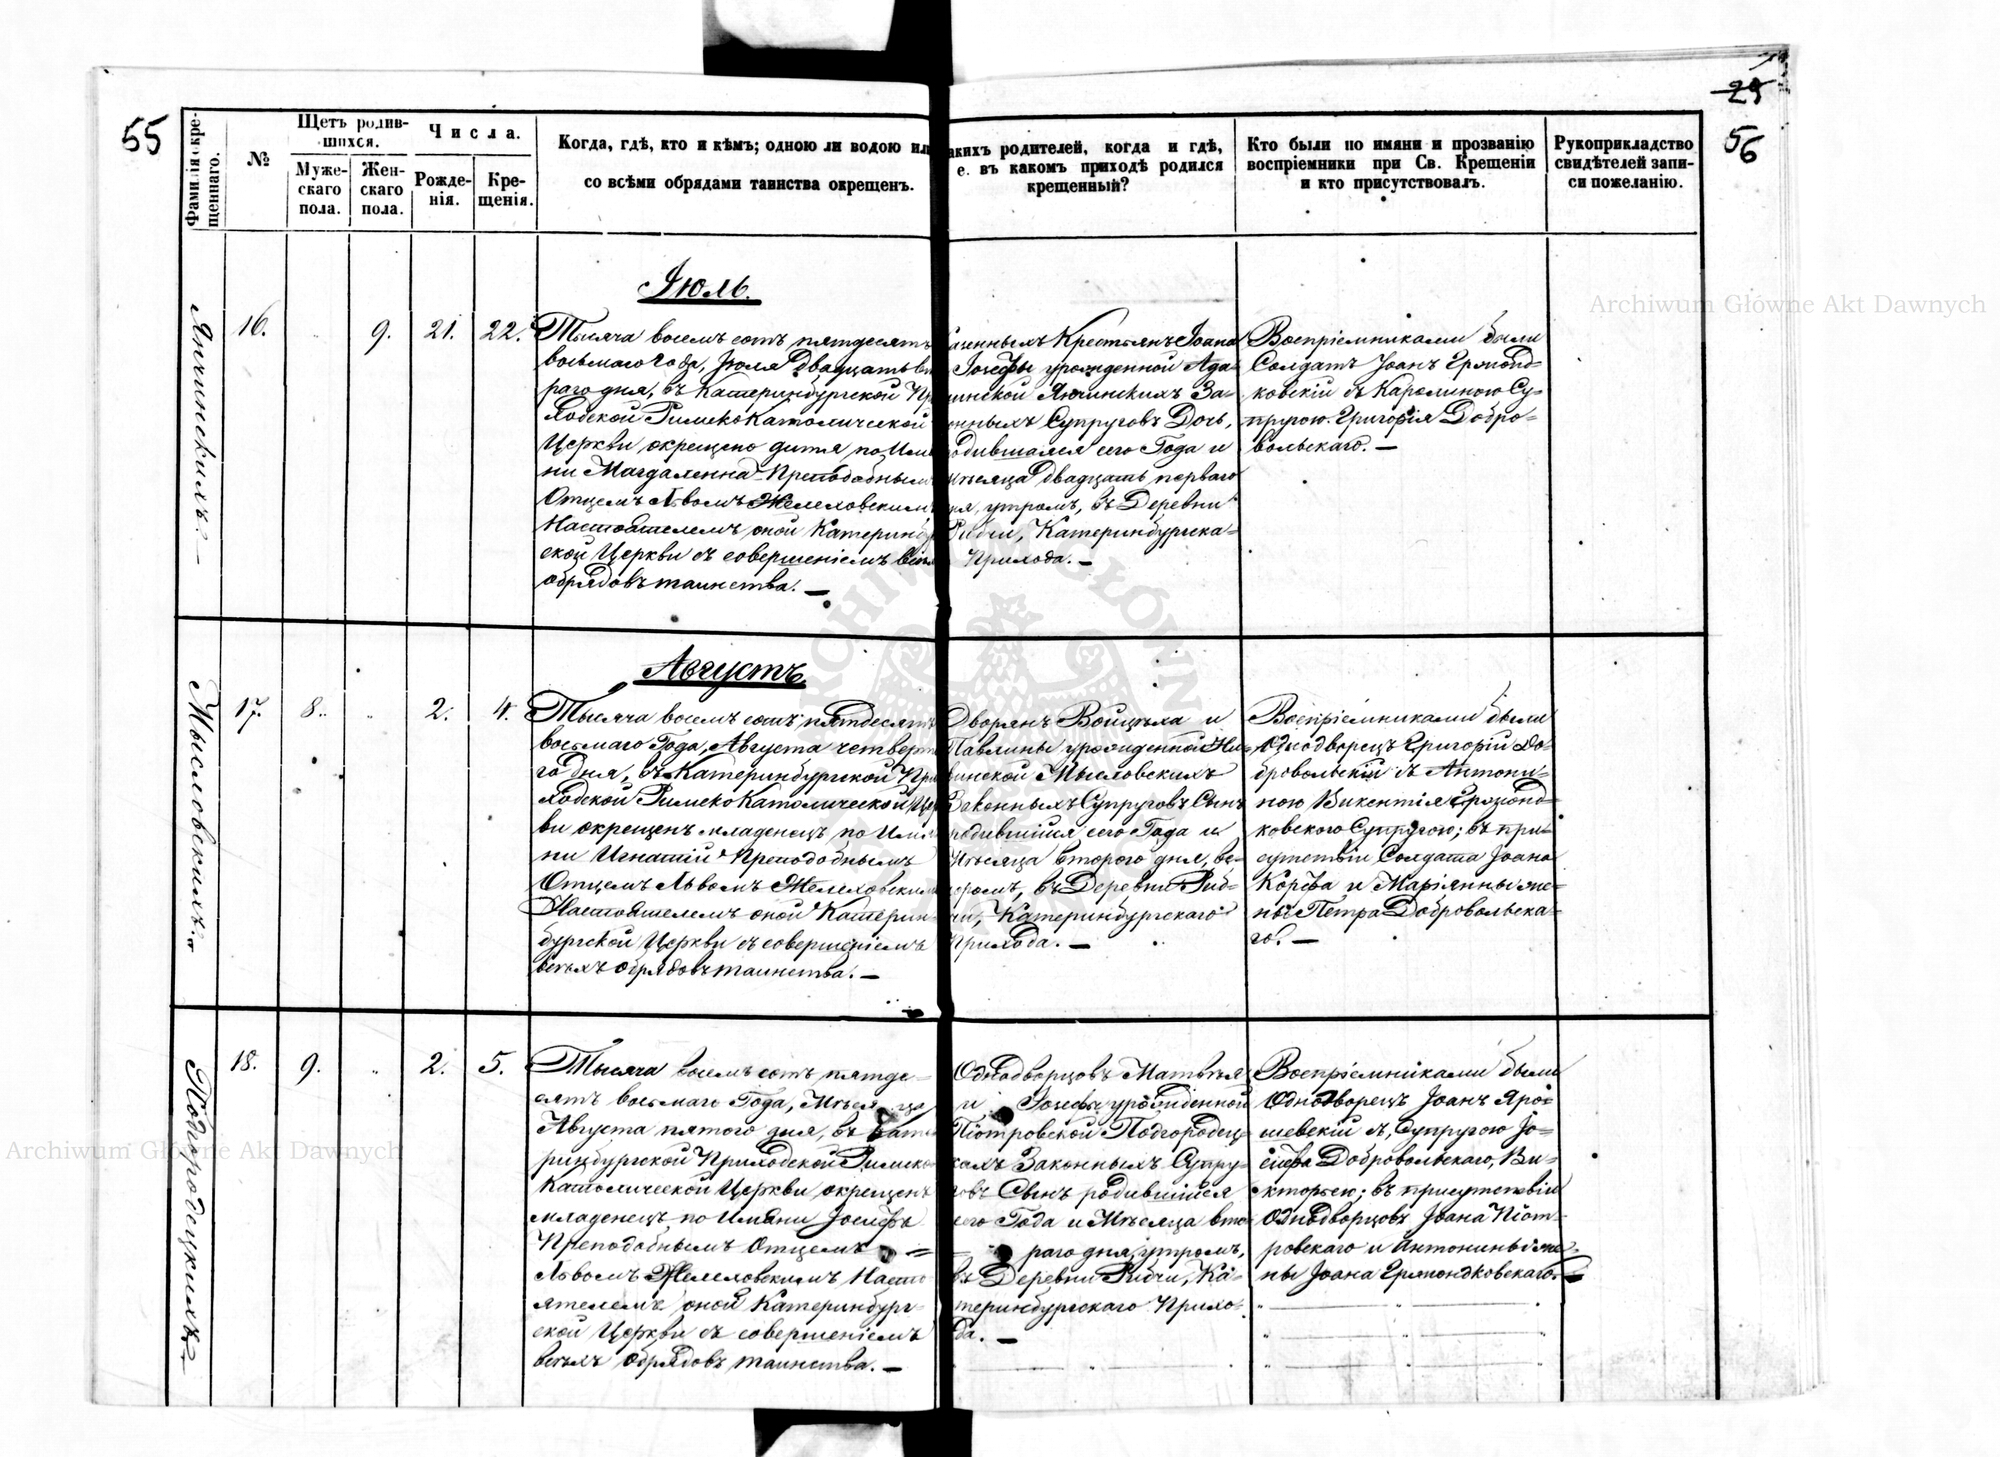 55
25
56
Фамилія кре-
щеннаго.
№
Щетъ родив-
шихся.
Муже-
скаго
пола.
Жен-
скаго
пола.
Числа.
Рожде-
нія.
Кре-
щенія.
Когда, гдѣ, кто и кѣмъ; одною ли водою ил
со всѣми обрядами таинства окрещенъ.
акихъ родителей, когда и гдѣ,
е. въ какомъ приходѣ родился
крещенный?
Кто были по имяни и прозванію
воспріемники при Св. Крещеніи
и кто присутствовалъ.
Рукоприкладство
свидѣтелей запи-
си пожеланію.
Іюль.
16.
9.
21.
22.
Тысяча восемъ сотъ пятдесятъ
восьмаго Года, Іюля Двадцать вт
раго дня, въ Катеринбургской Пр
ходской Римско Католической
Церкви окрещено дитя по Име
ни Магдаленна Преподобнымъ
Отцемъ Львомъ Желеховскимъ
Настоятелемъ оной Катеринбу
ской Церкви съ совершеніемъ всѣх
обрядовъ таинства. —
Крестьянъ Іоана
Іозефы урожденной Ада
минской Янчинскихъ За-
онныхъ Супруговъ Дочь,
одившаяся сего Года и
мѣсяца двадцать перваго
ня, утромъ, въ Деревни
Рибчи, Катеринбургска-
Прихода. —
Воспріемниками были
Солдатъ Іоанъ Грмонд-
ковскій съ Каролиною Су-
пругою Григорія Добро-
вольскаго. —
Янчинскихъ. —
Августъ.
17.
8.
2.
4.
Тысяча восемъ сотъ пятдесятъ
восьмаго Года, Августа четверт
го дня, въ Катеринбургской При
ходской Римско Католической Цер
ви окрещенъ младенецъ по Имя
ни Игнатій Преподобнымъ
Отцемъ Львомъ Желеховским
Настоятелемъ оной Катерин-
бургской Церкви съ совершеніемъ
всѣхъ обрядовъ таинства. —
Дворянъ Войцѣха и
Павлины урожденной
винской Мысловскихъ
Законныхъ Супруговъ Сынъ
родившійся сего Года и
Мѣсяца втораго дня, ве-
черомъ, въ Деревни Риб-
чи, Катеринбургскаго
Прихода. —
Воспріемниками были
Однодворецъ Григорій До-
бровольскій съ Антони-
ною Викентія Грмонд-
ковскаго Супругою; въ при-
сутствіи Солдата Іоана
Корфа и Маріянны же-
ны Петра Добровольска-
го. —
Мысловскихъ. —
18.
9.
2.
5.
Тысяча восемъ сотъ пятде-
сятъ восьмаго Года, Мѣсяца
Августа пятого дня, въ Кате
ринбургской Приходской Римско
Католической Церкви окрещенъ
младенецъ по Имяни Іосифъ
Преподобнымъ Отцемъ =
Львомъ Желеховскимъ Насто
ятелемъ оной Катеринбург-
ской Церкви съ совершеніемъ
всѣхъ обрядовъ таинства. —
Однодворцовъ Матвѣя
и Іозефы урожденной
Піотровской Подгородец-
кихъ Законныхъ Супру-
говъ Сынъ родившійся
сего Года и Мѣсяца вто-
раго дня, утромъ,
въ Деревни Рибчи, Ка-
теринбургскаго Прихо-
да. —
Воспріемниками были
Однодворецъ Іоанъ Яро-
шевскій съ Супругою Іо-
сифа Добровольскаго, Ви-
кторіею; въ присутствіи
Однодворцовъ Іоана Піот-
ровскаго и Антонины же-
ны Іоана Грмондковскаго. —
Подгородецкихъ
Archiwum Główne Akt Dawnych
Archiwum Główne Akt Dawnych